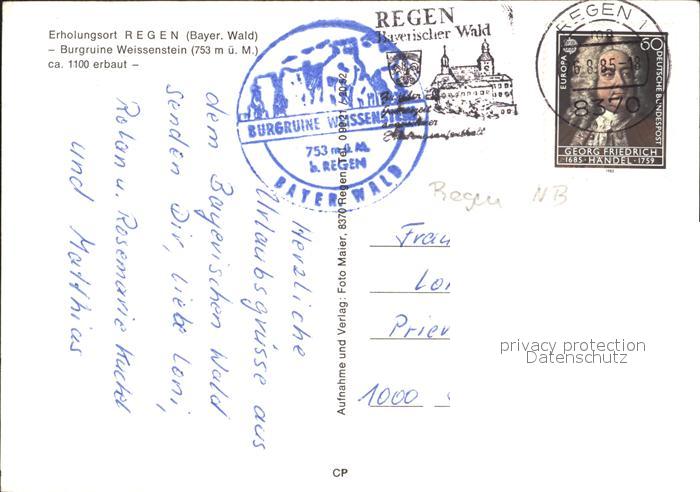 Erholungsort REGEN (Bayer. Wald)
– Burgruine Weissenstein (753 m ü. M.)
ca. 1100 erbaut –
BURGRUINE WEISSENSTEIN
753 m.ü.M.
b. REGEN
BAYER. WALD
REGEN
Bayerischer Wald
REGEN 1
6.8.85-18
8370
60
EUROPA
DEUTSCHE BUNDESPOST
GEORG FRIEDRICH
1685 · HÄNDEL · 1759
Regen NB
Herzliche
Urlaubsgrüsse aus
dem Bayerischen Wald
senden Dir, liebe Loni,
u. Rosemarie
und Matthias
Aufnahme und Verlag: Foto Maier, 8370 Regen, Tel. 0 99 21 /
Frau
Lo
Prie
1000
privacy protection
Datenschutz
CP